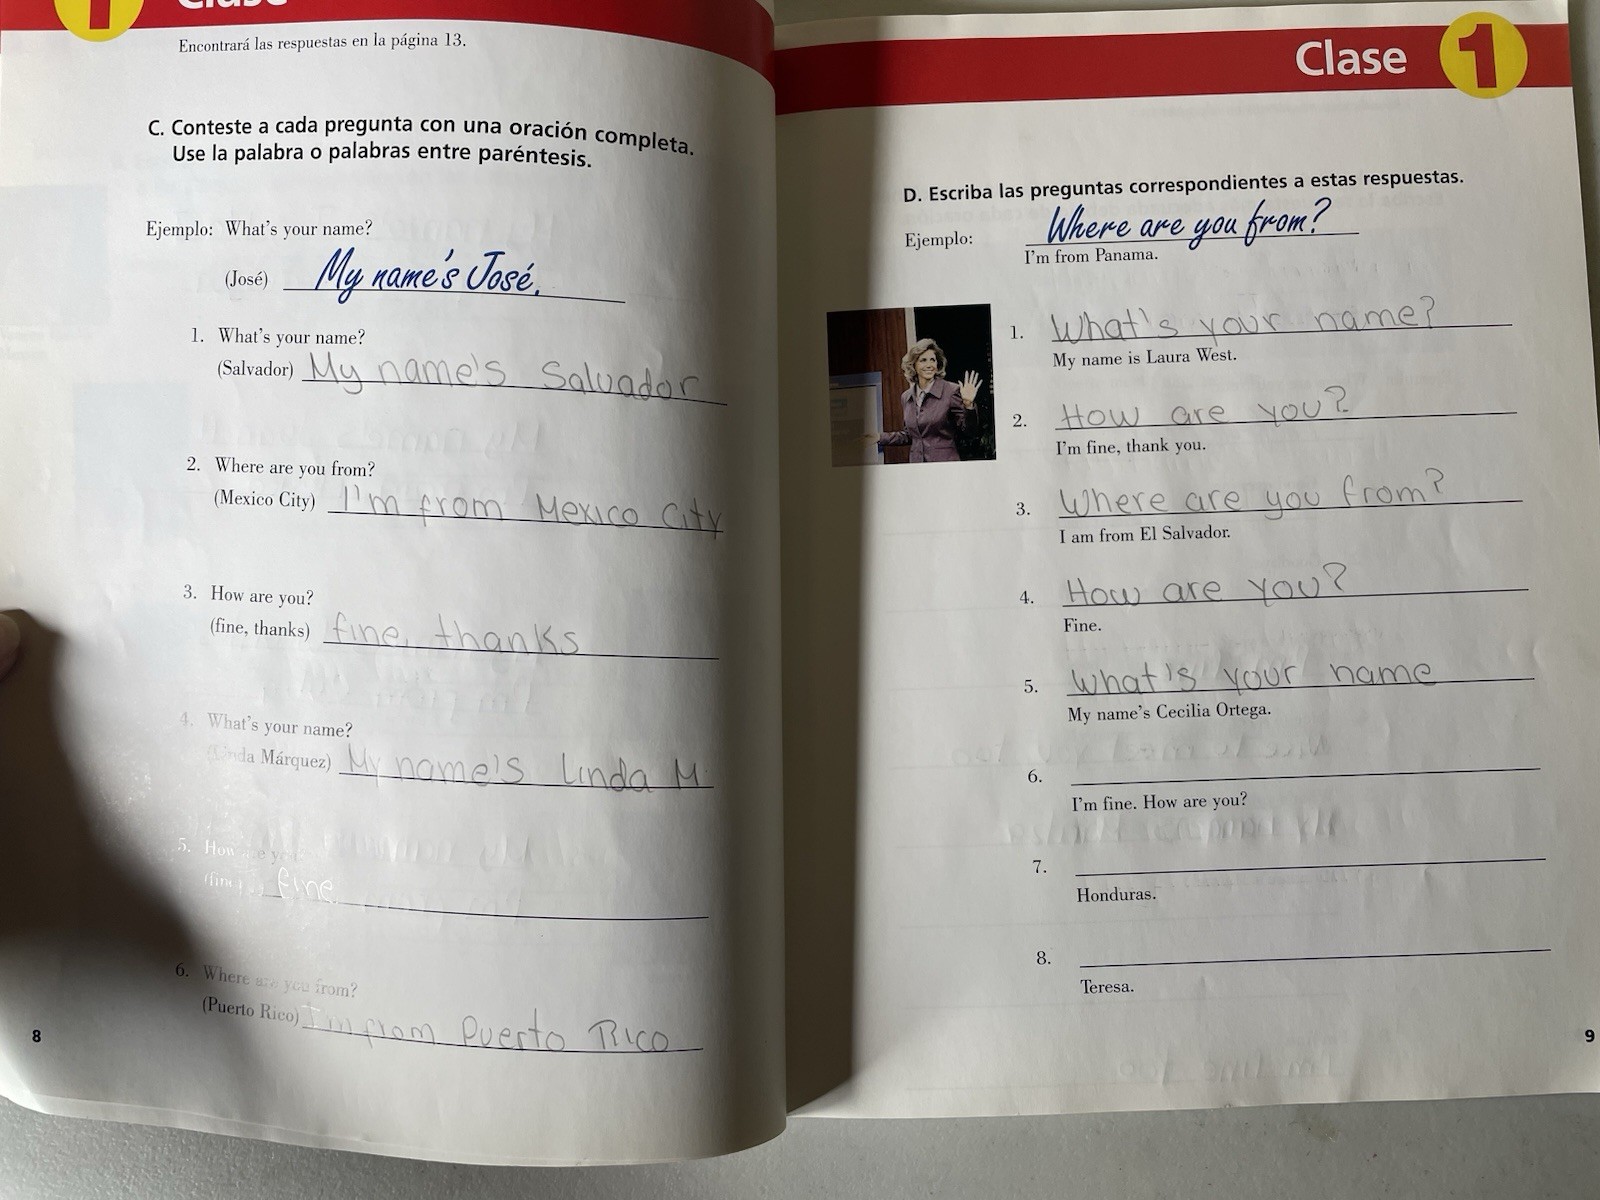 Clase
Encontrará las respuestas en la página 13.
C. Conteste a cada pregunta con una oración completa.
Use la palabra o palabras entre paréntesis.
Ejemplo: What's your name?
(José) My name's José.
1. What's your name?
(Salvador) My name's Salvador
2. Where are you from?
(Mexico City) I'm from Mexico City
3. How are you?
(fine, thanks) fine, thanks
4. What's your name?
(Linda Márquez) My name's Linda M.
5. How are you?
(fine) fine
6. Where are you from?
(Puerto Rico) I'm from Puerto Rico
8
Clase 1
D. Escriba las preguntas correspondientes a estas respuestas.
Ejemplo: Where are you from?
I'm from Panama.
1. What's your name?
My name is Laura West.
2. How are you?
I'm fine, thank you.
3. Where are you from?
I am from El Salvador.
4. How are you?
Fine.
5. What's your name
My name's Cecilia Ortega.
6.
I'm fine. How are you?
7.
Honduras.
8.
Teresa.
9